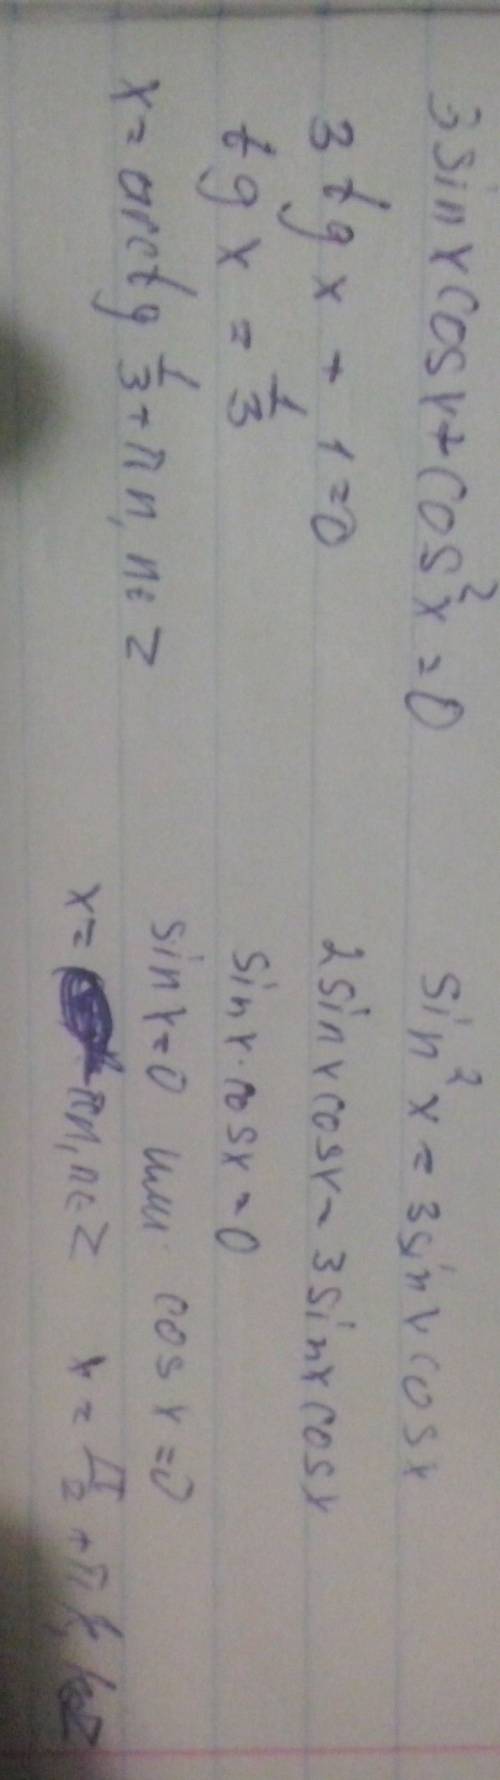 3 sin x cos x + cos² x = 0
3 tg x + 1 = 0
tg x = 1/3
x = arctg 1/3 + πn, n ∈ Z
sin² x = 3 sin x cos x
2 sin x cos x = 3 sin x cos x
sin x · cos x = 0
sin x = 0 или cos x = 0
x = πn, n ∈ Z x = π/2 + πk, k ∈ Z